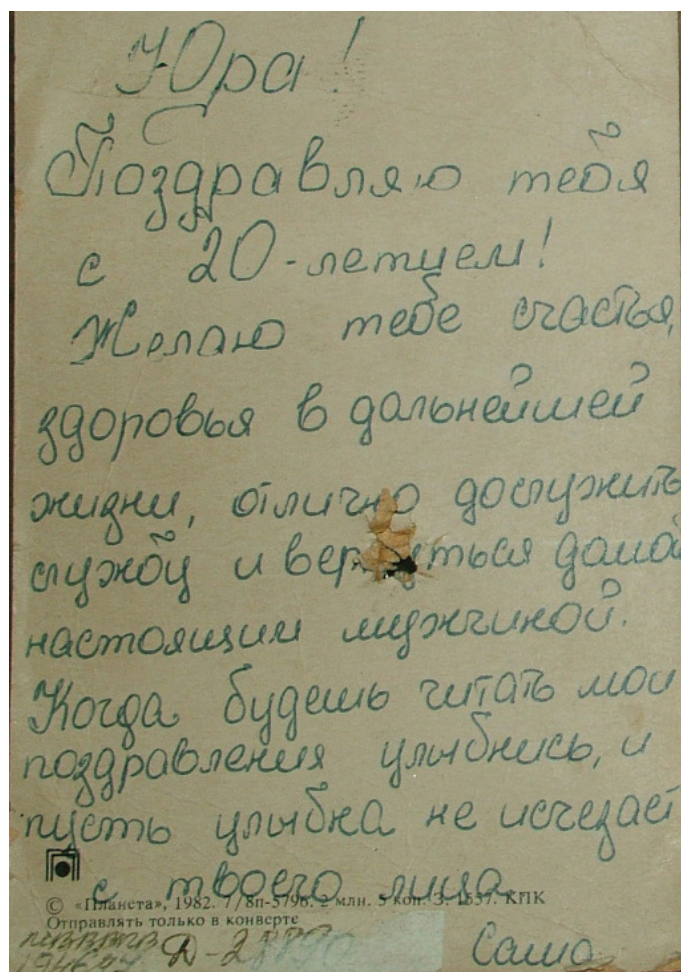 Юра!
Поздравляю тебя
с 20-летием!
Желаю тебе счастья,
здоровья в дальнейшей
жизни, отлично дослужить
службу и вернуться домой
настоящим мужчиной.
Когда будешь читать мои
поздравления улыбнись, и
пусть улыбка не исчезает
с твоего лица.
© «Планета», 1982. 7/8п-5796. 2 млн. 5 коп. З. 1537. КПК
Отправлять только в конверте
Саша